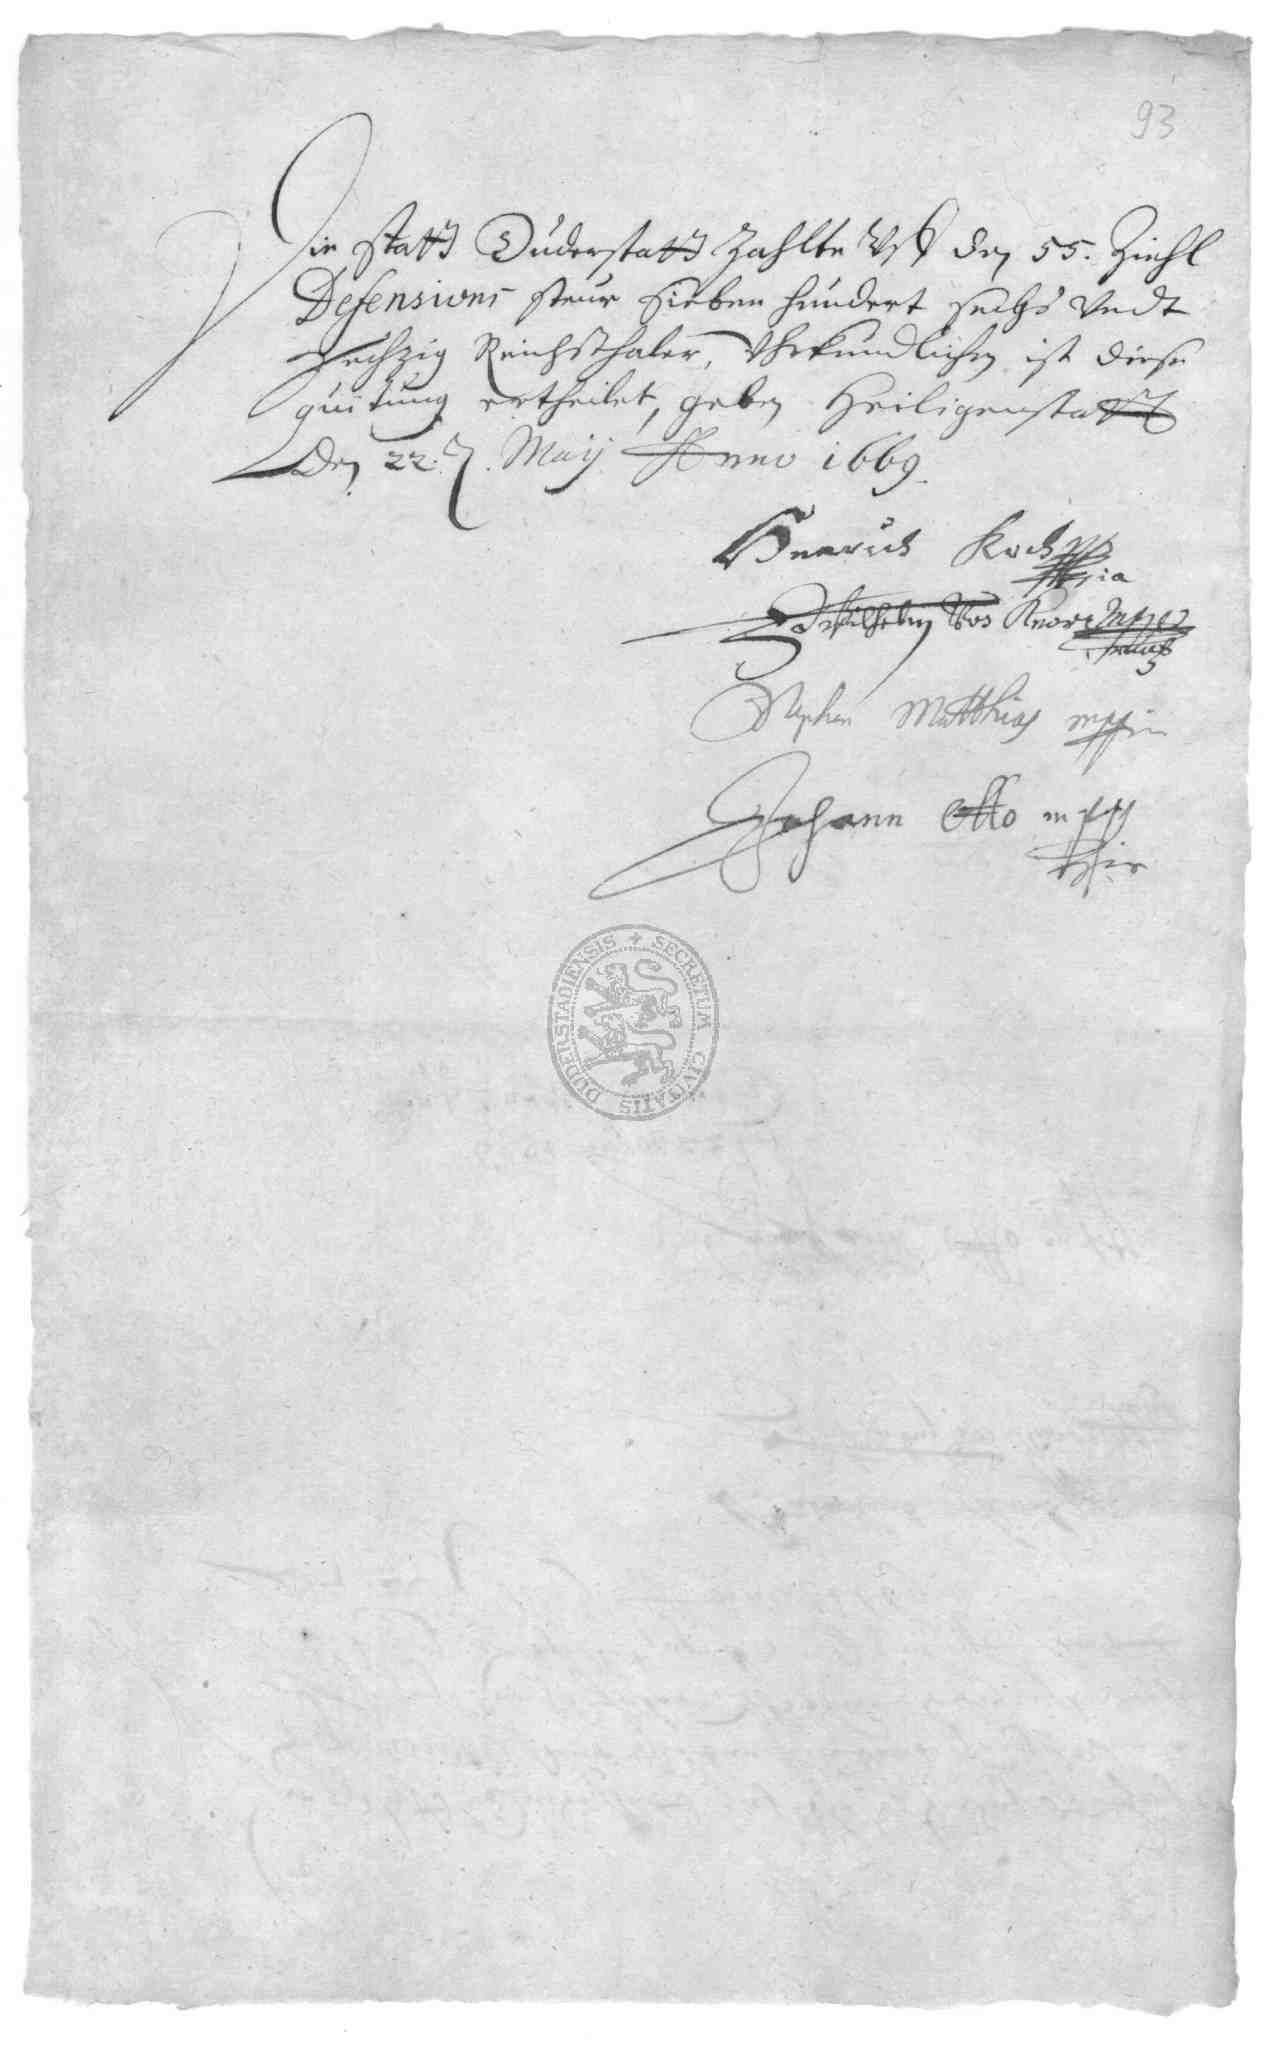 93
Die statt Duderstatt Zahlte Vff den 55. Ziehl
Defensions steur Sieben hundert sechs Vndt
sechzig Reichsthaler, Vhrkundlichen ist diese
quitung ertheilet, geben Heiligenstatt
den 22. Maij Anno 1669.
Henrich Koch mppria
Wilhelm Knorr mppria
Stephan Matthias mppria
Johann Otto mpp
ria
SECRETUM CIVITATIS DUDERSTADIENSIS